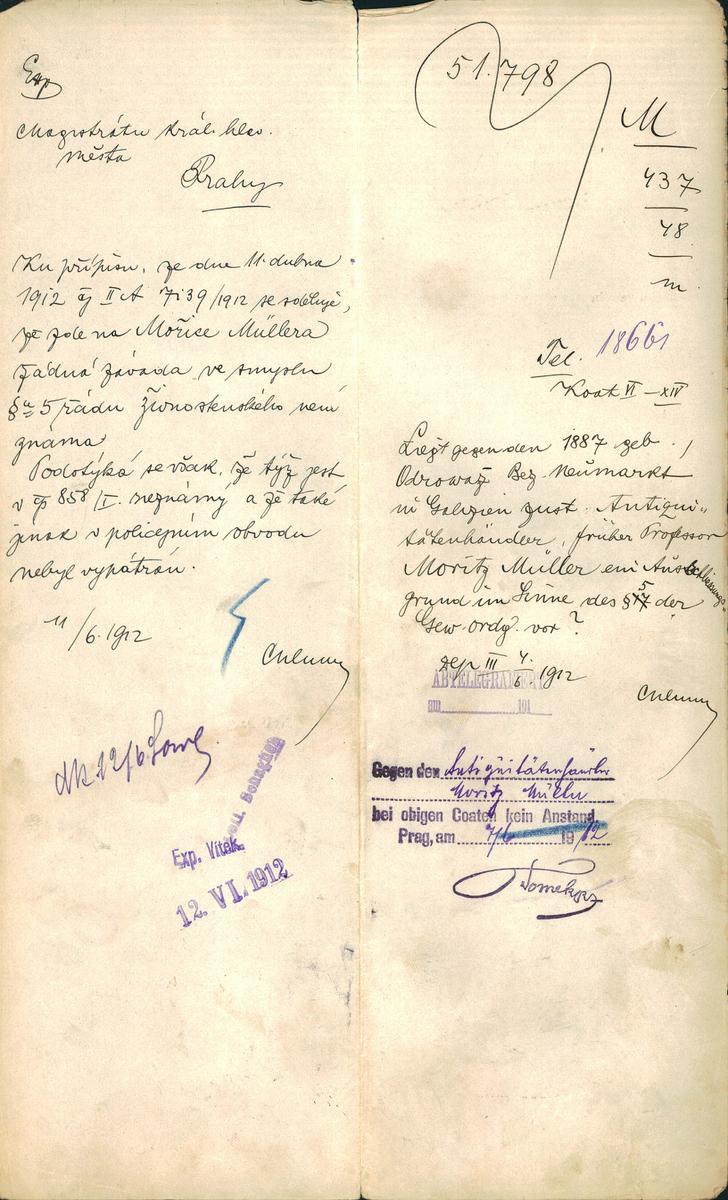 Exp
Magistrátu král. hlav.
města
Prahy
Ku přípisu, ze dne 11. dubna
1912 čj II A 7139/1912 se sděluje,
že zde na Mořice Müllera
žádná závada ve smyslu
§u 5 řádu živnostenského není
známa
Podotýká se však, že týž jest
v čp 858/I. neznámý a že také
jinak v policejním obvodu
nebyl vypátrán.
11/6. 1912
12/6
Exp. Vítek.
12. VI. 1912
51.798
M
437
48
m.
Tel. 18661
Koat VI–XIV
Liegt gegen den 1887 geb.,
Odrowaz Bez. Neumarkt
in Galizien zust. Antiqui„
tätenhändler, früher Professor
Moritz Müller ein Ausschliessungs-
grund im Sinne des § 5 der
Gew. ordg. vor?
Dep III 4./6 1912
ABTELEGRAFIERT
am 191
Gegen den Antiquitätenhändler
Moritz Müller
bei obigen Coaten kein Anstand.
Prag, am 7/6 1912